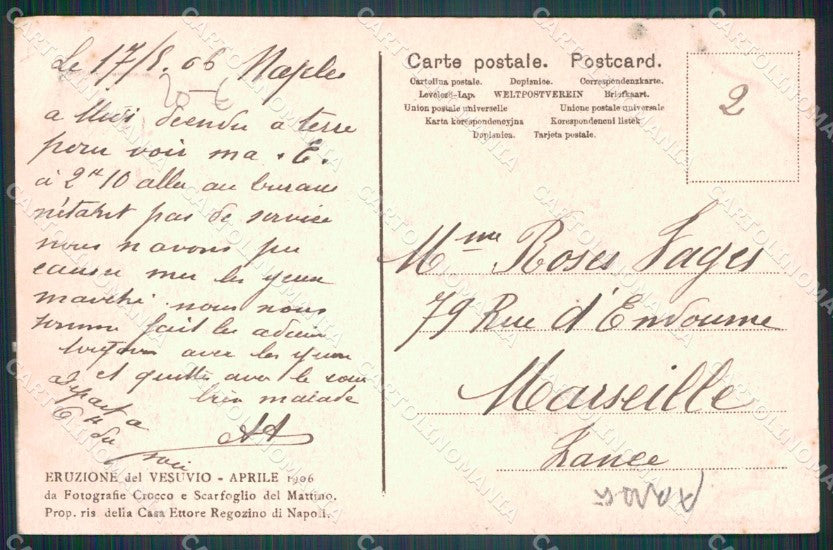 Le 17/8. 06 Naples
a Midi decendu a terre
pour voir ma . E.
à 2 H 10 aller au bureau
n'étant pas de service
nous n avons pu
causer les yeux
marché nous nous
somme fait les adieu
toujour avec les yeux
et quitté avec le cour
bien malade
depart a
6 H du
soir
AA
ERUZIONE del VESUVIO - APRILE 1906
da Fotografie Crocco e Scarfoglio del Mattino.
Prop. ris della Casa Ettore Regozino di Napoli.
Carte postale. Postcard.
Cartolina postale. Dopisnice. Correspondenzkarte.
Levelező-Lap. WELTPOSTVEREIN Briefkaart.
Union postale universelle Unione postale universale
Karta korespondencyjna Korespondencni listek
Dopisnica. Tarjeta postale.
2
Mme Roses Sages
79 Rue d'Endoume
Marseille
France
CARTOLINOMANIA